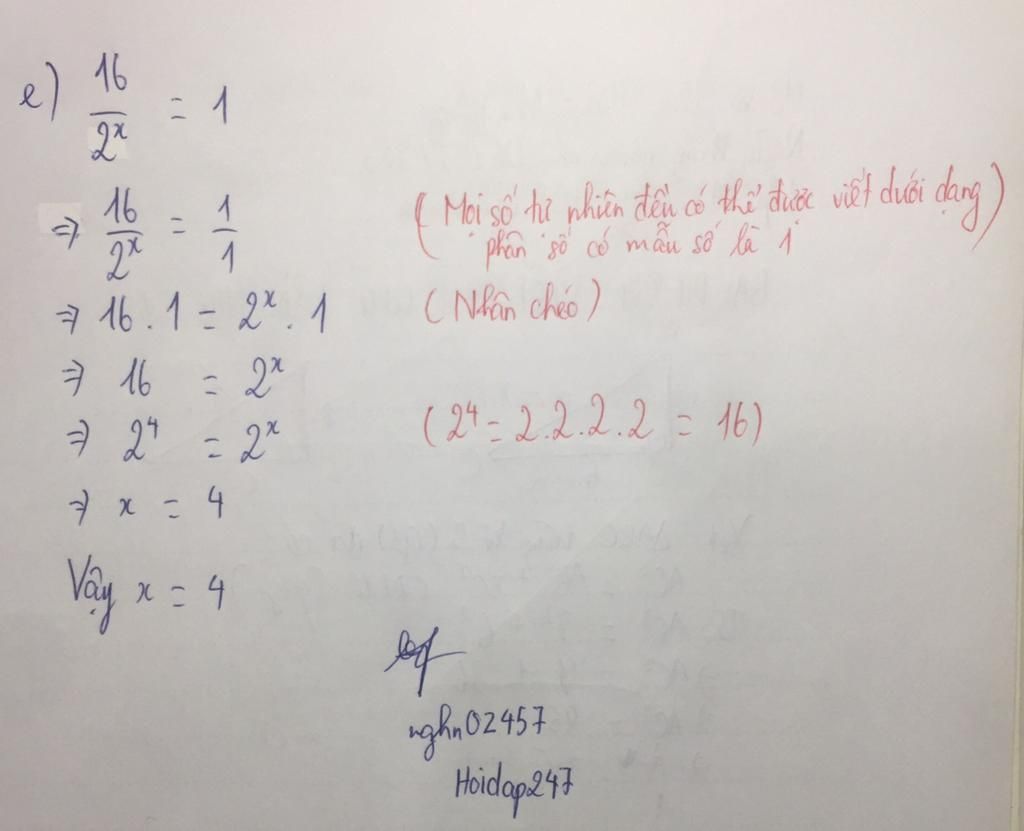 e) 16/2ˣ = 1
⇒ 16/2ˣ = 1/1 (Mọi số tự nhiên đều có thể được viết dưới dạng
phân số có mẫu số là 1)
⇒ 16 . 1 = 2ˣ . 1 (Nhân chéo)
⇒ 16 = 2ˣ
⇒ 2⁴ = 2ˣ (2⁴ = 2.2.2.2 = 16)
⇒ x = 4
Vậy x = 4
nghn02457
Hoidap247